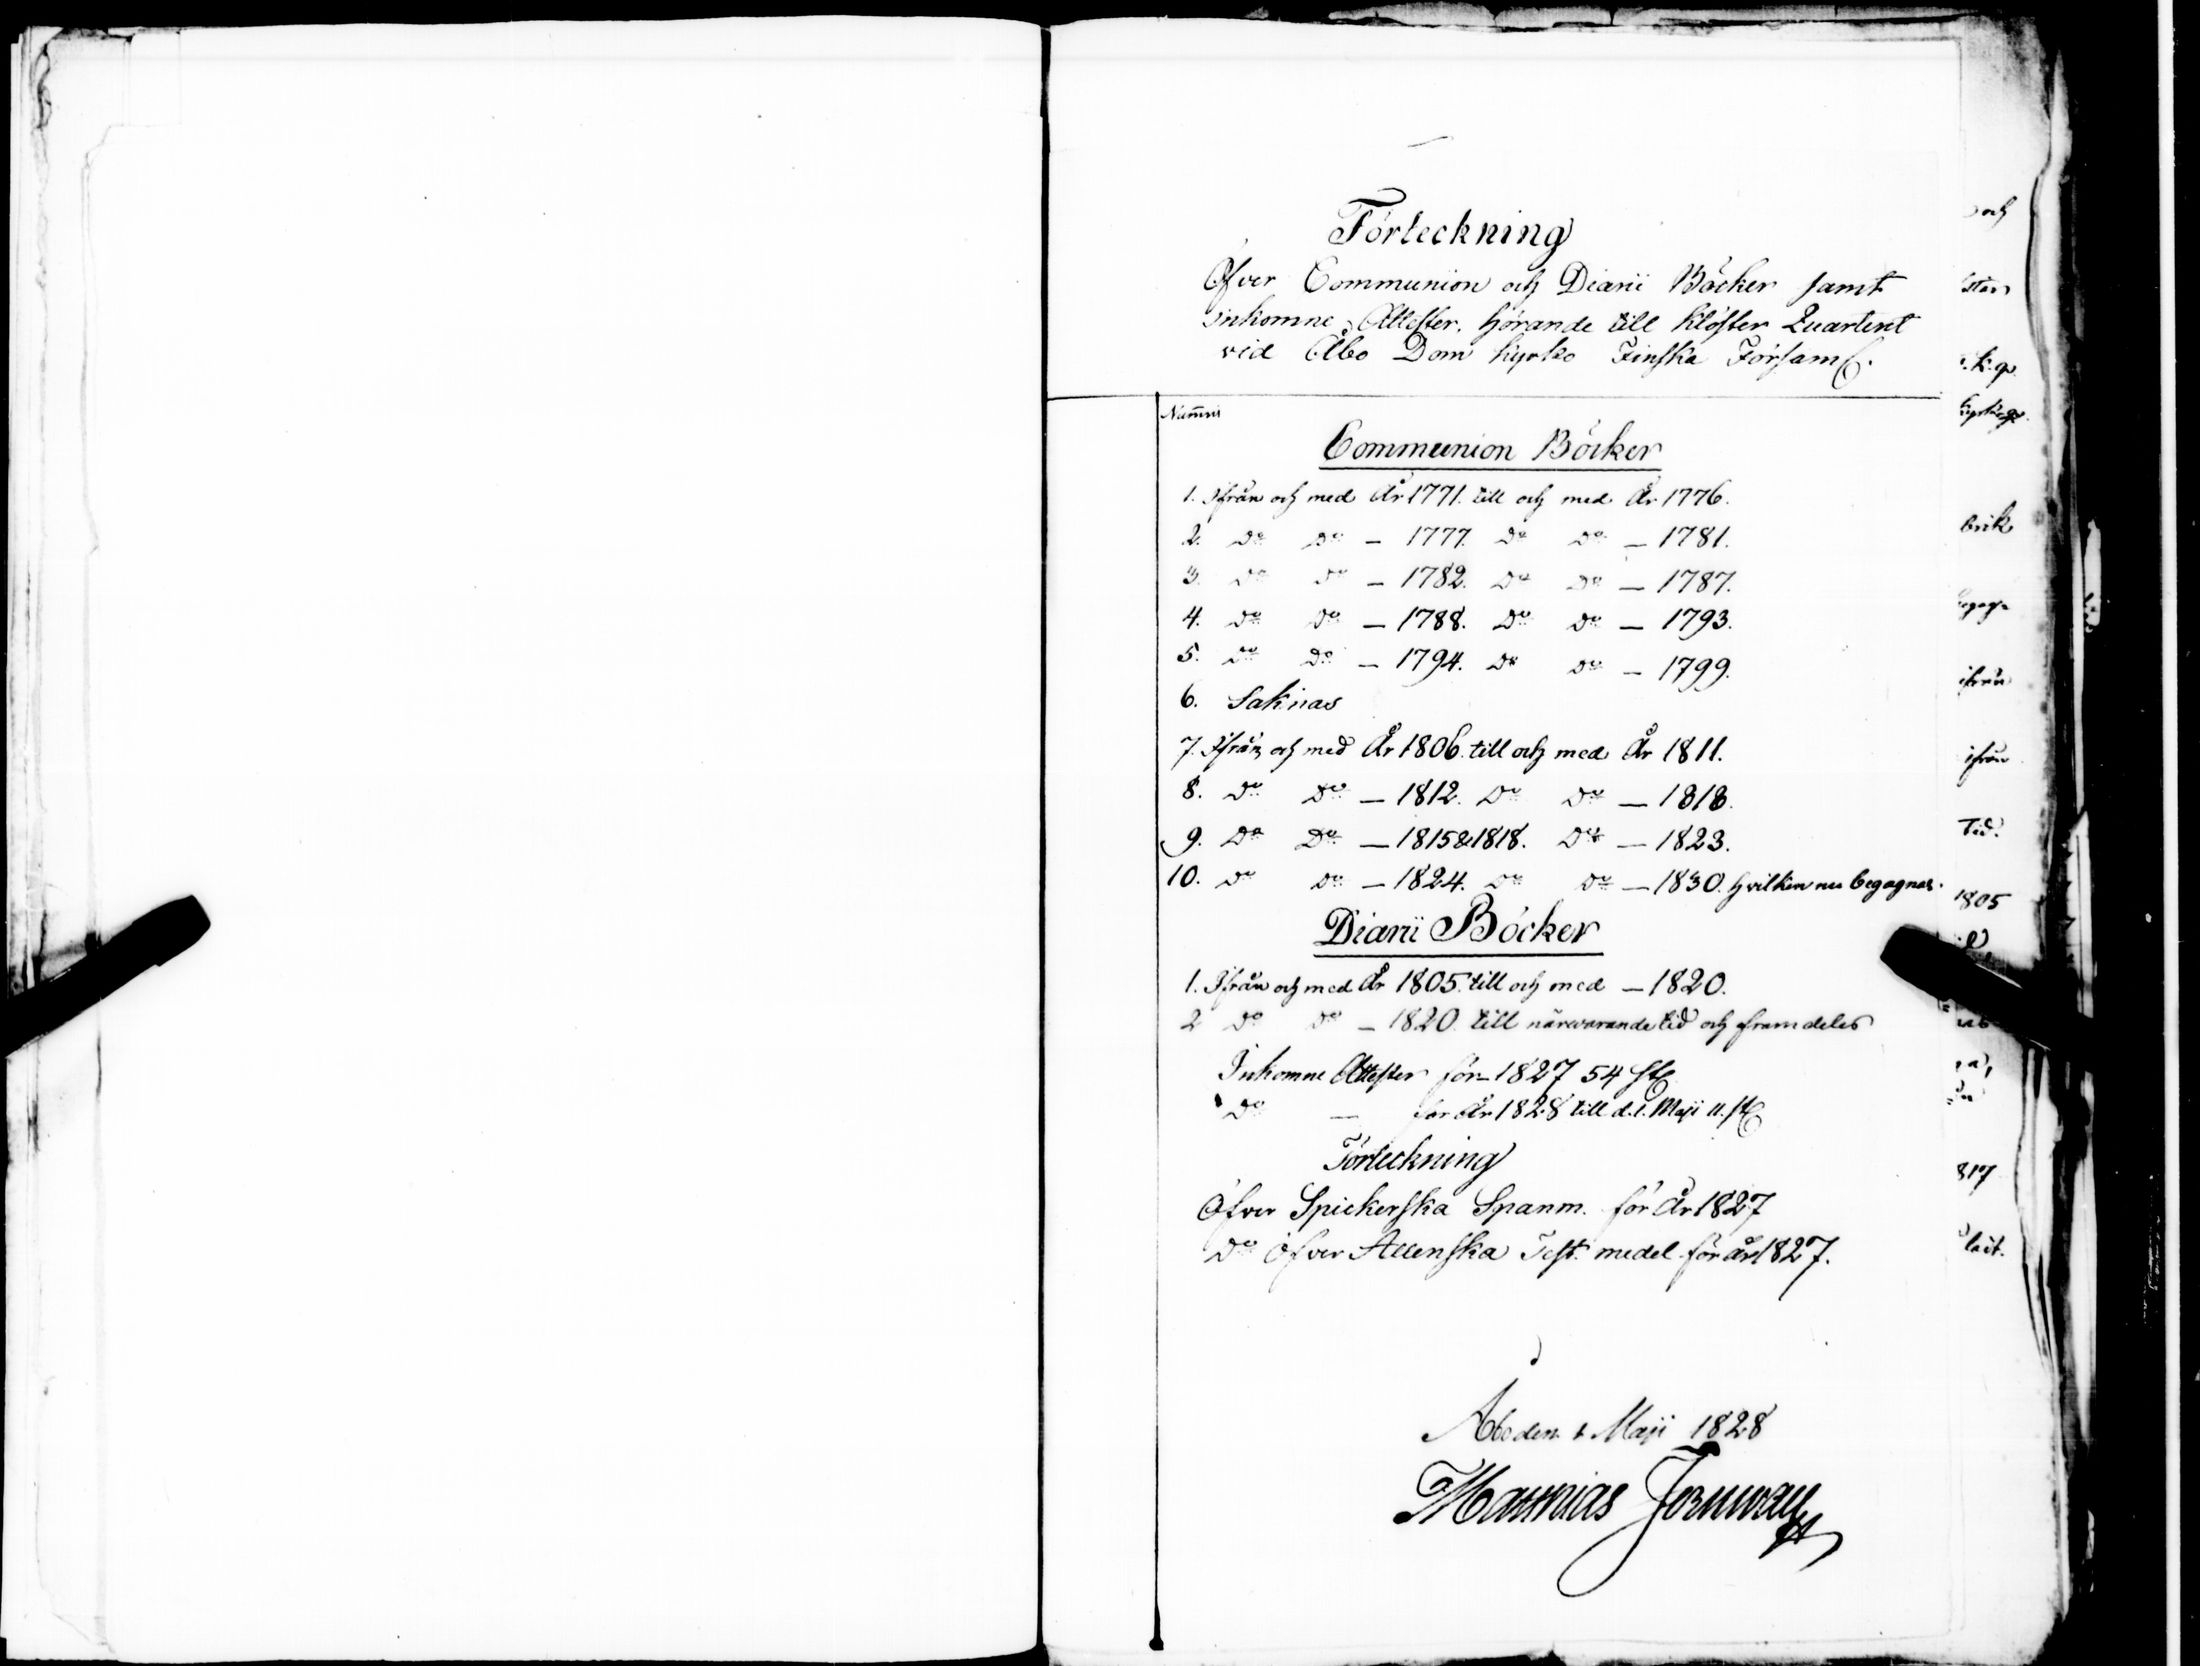 Förteckning
Öfver Communion och Diarii Böcker samt
inkomne Attester, hörande till Klöster Quarteret
vid Åbo Dom kyrko Finska Församl.
Num̄ris
Communion Böcker
1. Ifrån och med År 1771. till och med År 1776.
2. Do Do — 1777. Do Do — 1781.
3. Do Do — 1782. Do Do — 1787.
4. Do Do — 1788. Do Do — 1793.
5. Do Do — 1794. Do Do — 1799.
6. Saknas
7. Ifrån och med År 1806. till och med År 1811.
8. Do Do — 1812. Do Do — 1818.
9. Do Do — 1815 & 1818. Do — 1823.
10. Do Do — 1824. Do Do — 1830. hvilken nu begagnas.
Diarii Böcker
1. Ifrån och med År 1805. till och med — 1820.
2 Do Do — 1820. till närvarande tid och framdeles
Inkomne Attester för 1827 54 st
Do — för År 1828 till d. 1. Maji 11. st
Förteckning
Öfver Spickerska Spanm. för År 1827
Do Öfver Allenska Test. medel för år 1827.
Åbo den 1 Maji 1828
Matthias
och
k. g.
brik
ifrån
ifrån
Tid.
1805
817